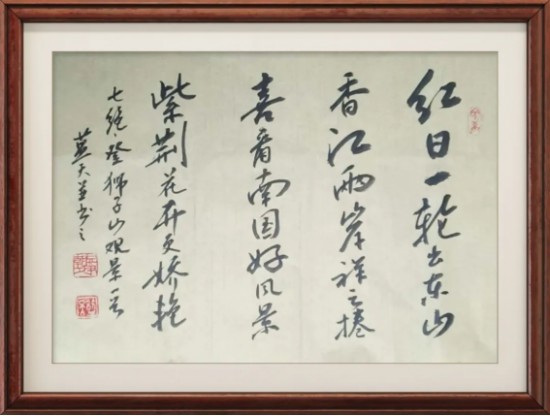 红日一轮出东山
香江两岸祥云捲
喜看南国好风景
紫荆花开更娇艳
七绝·登狮子山观景一首